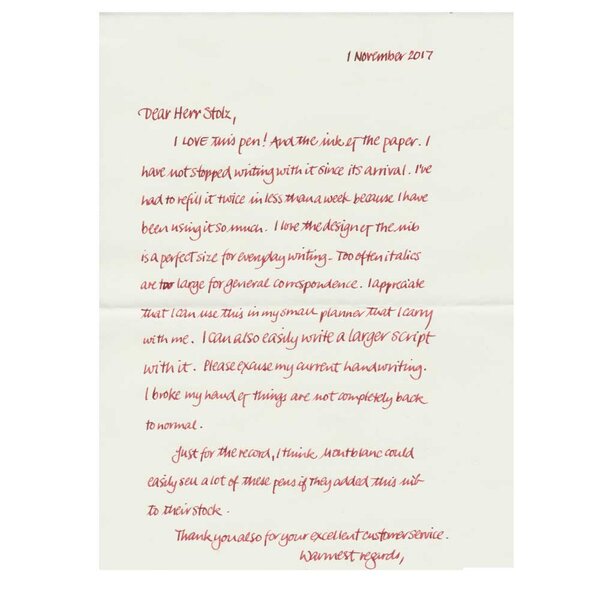 1 November 2017
Dear Herr Stolz,
I LOVE this pen! And the ink & the paper. I
have not stopped writing with it since its arrival. I've
had to refill it twice in less than a week because I have
been using it so much. I love the design & the nib
is a perfect size for everyday writing. Too often italics
are too large for general correspondence. I appreciate
that I can use this in my small planner that I carry
with me. I can also easily write a larger script
with it. Please excuse my current handwriting.
I broke my hand & things are not completely back
to normal.
Just for the record, I think Montblanc could
easily sell a lot of these pens if they added this nib
to their stock.
Thank you also for your excellent customer service.
Warmest regards,